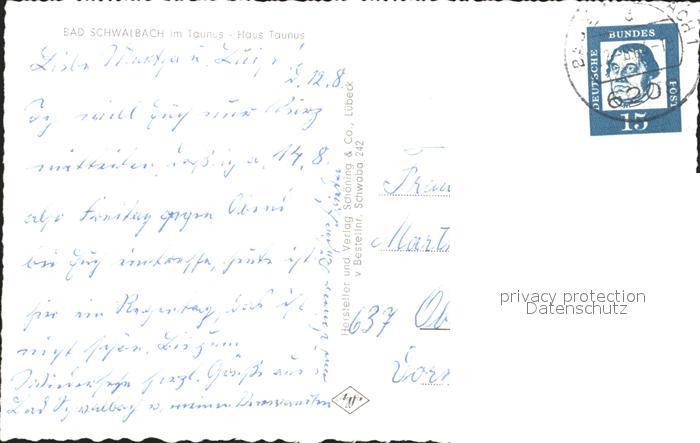 BAD SCHWALBACH im Taunus - Haus Taunus
Liebe Martha u. Luise!
d. 12.8.
Ich will Euch nur kurz
mitteilen, daß ich a. 14.8.
also Freitag gegen Abend
bei Euch eintreffe, heute ist
hier ein Regentag, das ist
nicht schön. Bis zum
Wiedersehn herzl. Grüße aus
Bad Schwalbach v. meinen Verwandten
Hersteller und Verlag Schöning & Co., Lübeck
v Bestellnr. Schwaba 242
Frau
Mart
637 Ob
DEUTSCHE BUNDES POST
15
620
privacy protection
Datenschutz